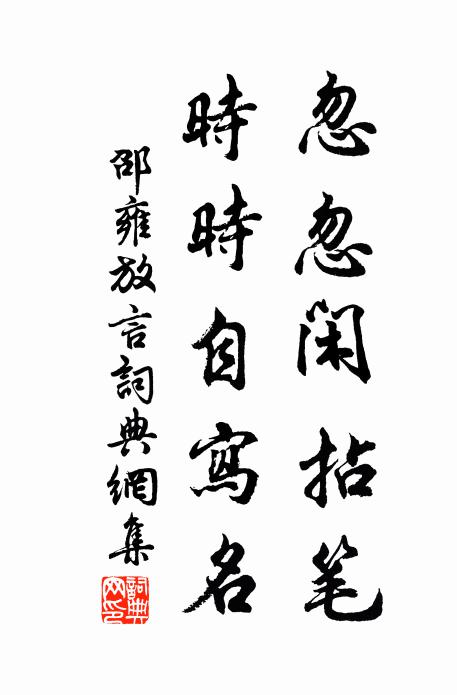 忽忽闲拈笔
時時自寫名
邵雍放言詞典網集
詞典网印